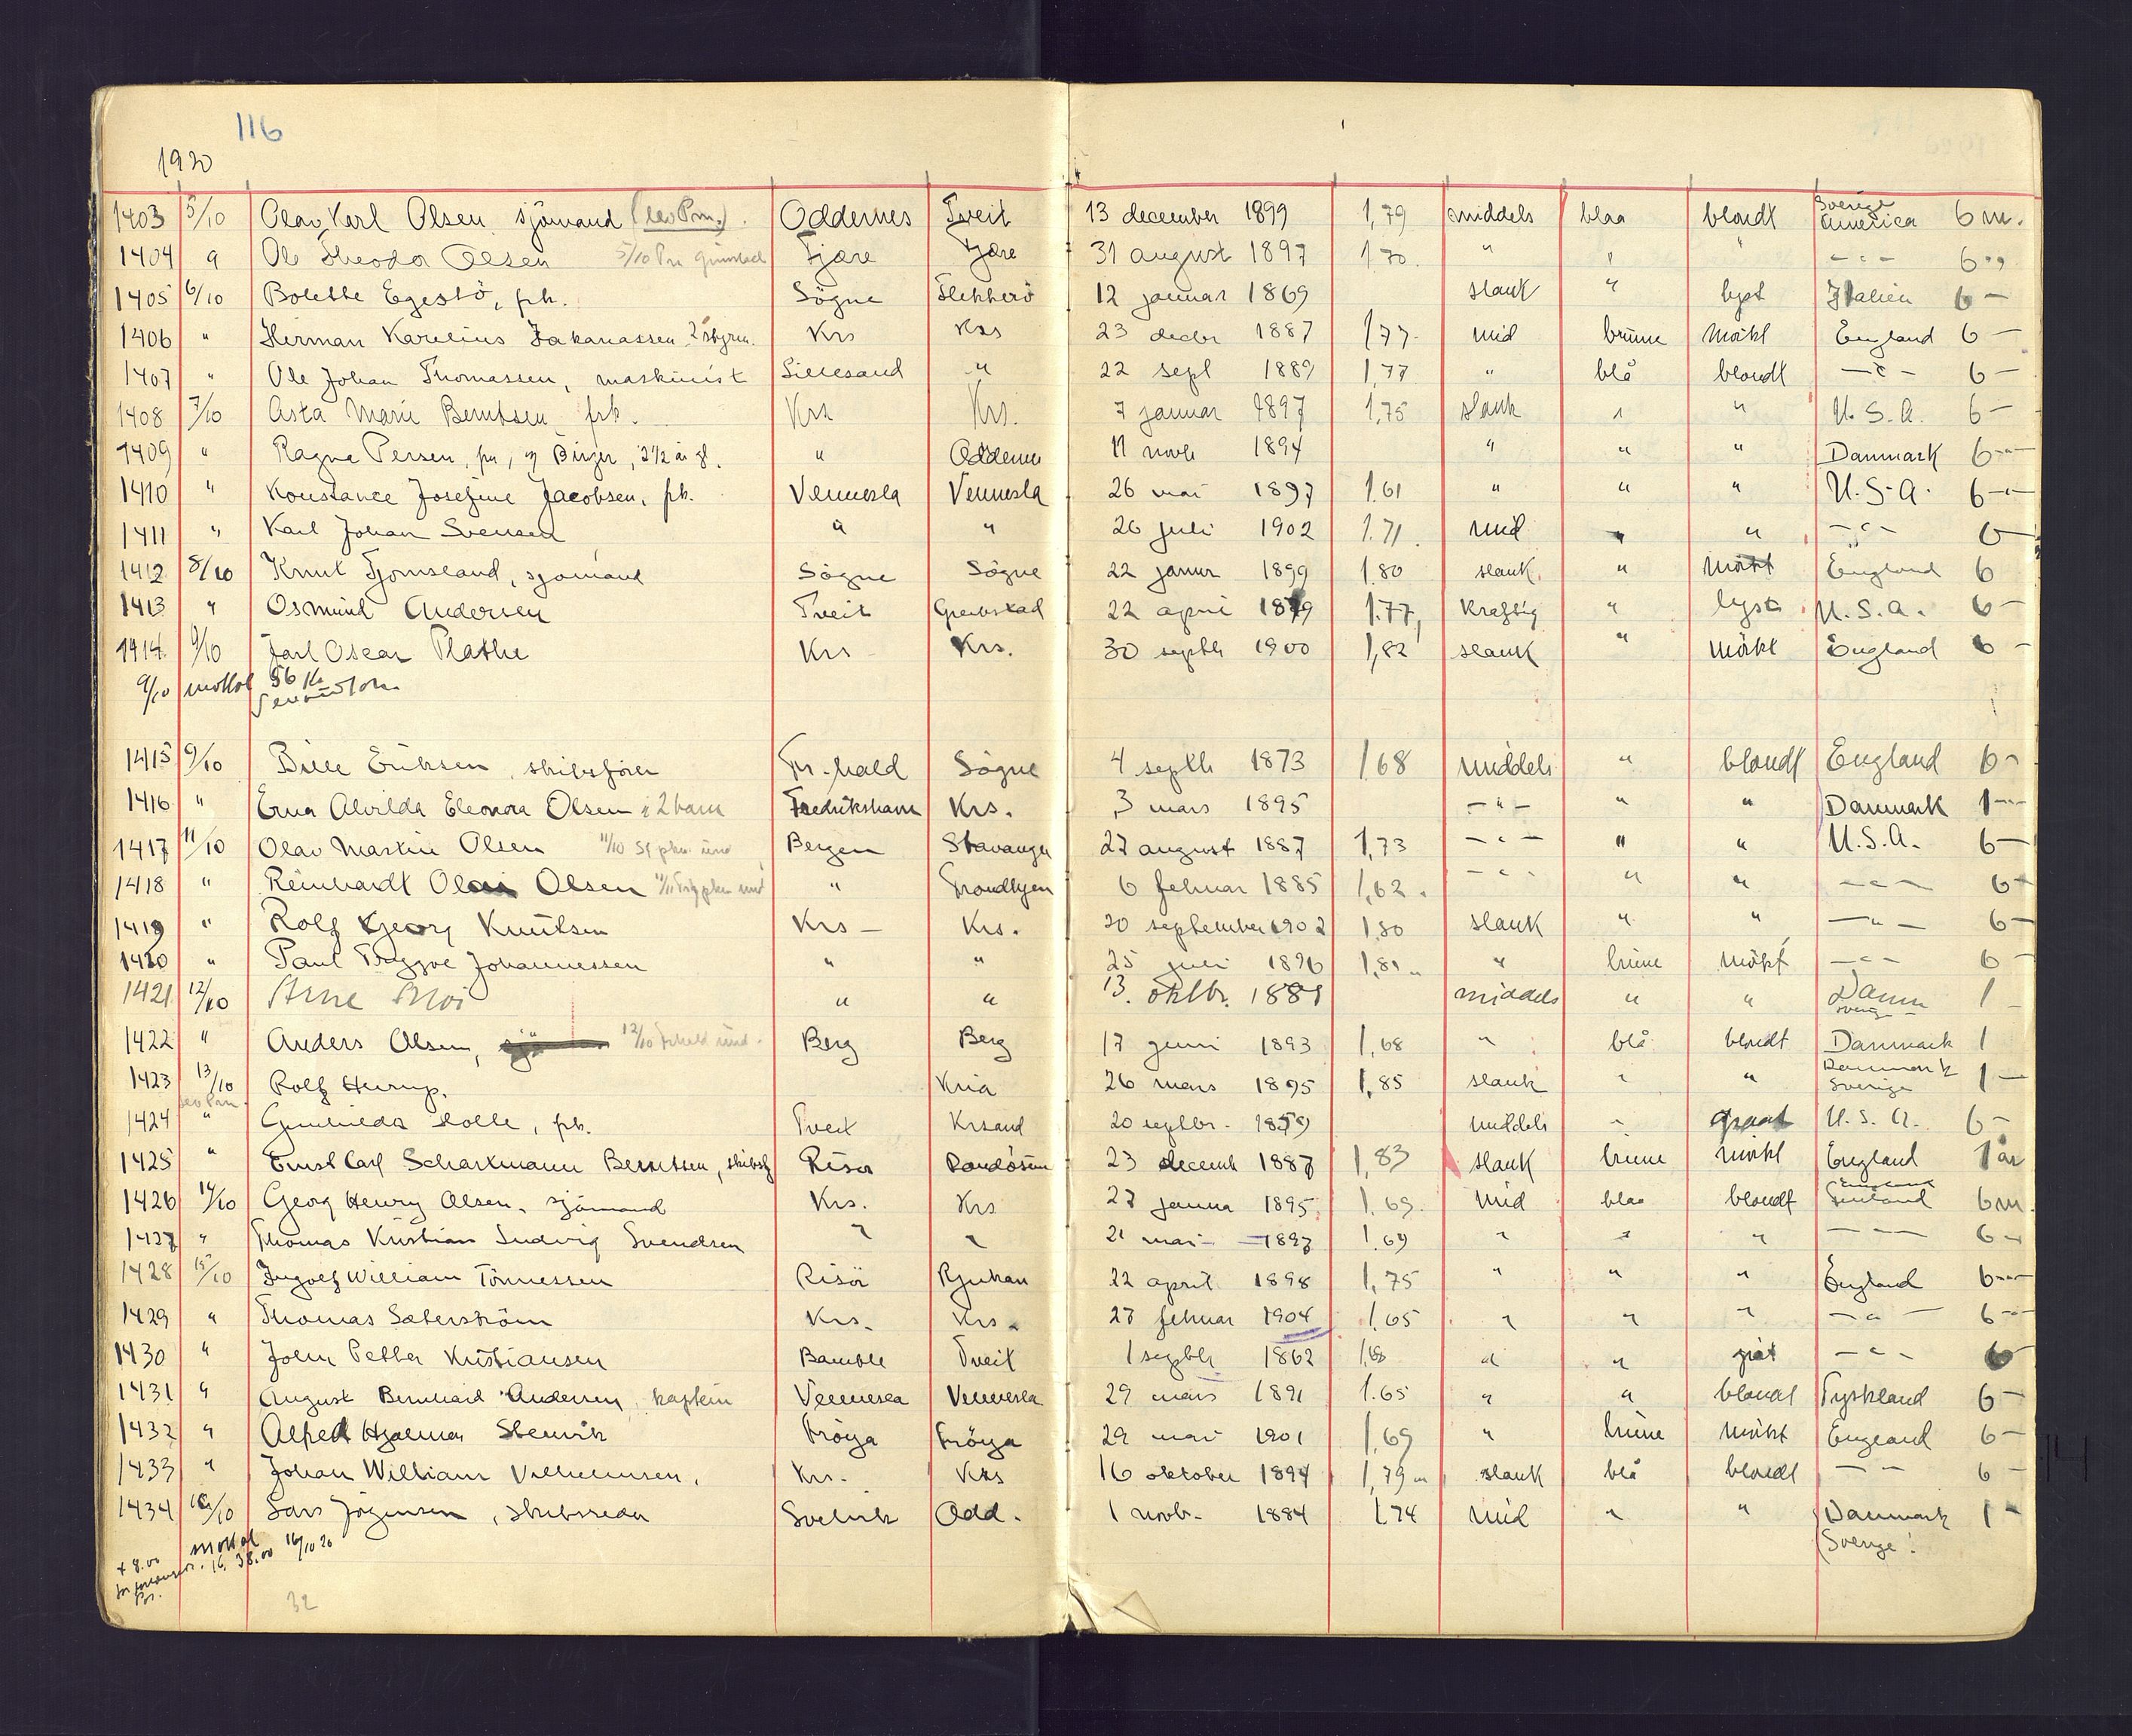 116
1920
1403 5/10 Olav Karl Olsen sjømand (lev Prm.) Oddernes Tveit 13 december 1899 1,79 middels blaa blondt Sverige America 6 m.
1404 " Ole Theodor Olsen 5/10 Grimstad Fjære Fjære 31 august 1897 1.70. " " " -"- 6 "
1405 6/10 Bolette Egestö, frk. Sögne Flekkerö 12 januar 1869 slank " lyst Italien 6 -
1406 " Herman Karelius Zakariassen 2 styrm. Krs Krs 23 decbr 1887 1,77 mid brune mörkt England 6 -
1407 " Ole Johan Thomassen, maskinist Lillesand " 22 sept 1889 1,77 " blå blondt -"- 6 -
1408 7/10 Asta Marie Berntsen frk. Krs Krs. 7 januar 1897 1,75 slank " " U.S.A. 6 -
1409 " Ragna Persen, fru, og Birger, 2 1/2 år gl. " Oddernes 11 novb 1894 " " " Danmark 6 -"-
1410 " Konstance Josefine Jacobsen, frk. Vennesla Vennesla 26 mai 1897 1.61 " " " U.S.A. 6 -"-
1411 " Karl Johan Svensen " " 26 juli 1902 1.71. mid " " -"- 6 -
1412 8/10 Knut Tjomsland, sjømand Sögne Sögne 22 januar 1899 1.80 slank " mörkt England 6
1413 " Osmund Andersen Tveit 22 april 1879 1.77, kraftig " lyst U.S.A. 6 -
1414 9/10 Jarl Oscar Plathe Krs Krs. 30 septb 1900 1,82 slank " mörkt England 6 -
9/10 mottat 56 Kr
1415 9/10 Eriksen, skibsförer Fr.hald Sögne 4 septb 1873 1,68 middels " blondt England 6 -
1416 " Erna Alvilda Eleonora Olsen i 2 barn Fredrikshavn Krs. 3 mars 1895 -"- " " Danmark 1 -"-
1417 11/10 Olav Martin Olsen 11/10 Bergen Stavanger 27 august 1887 1,73 -"- " " U.S.A. 6 -
1418 " Reinhardt Olai Olsen " Trondhjem 6 februar 1885 1,62. -"- " " -"- 6 -
1419 " Rolf Georg Knutsen Krs - Krs. 20 september 1902 1.80 slank " " -"- 6 -
1420 " Paul Tryggve Johannessen " " 25 juli 1896 1,81 " brune mörkt -"- 6 -
1421 12/10 Arne Moi " " 13. oktbr. 1881 middels " " Danm Sverige 1 -
1422 " Anders Olsen, 12/10 Berg Berg 17 juni 1893 1,68 " blå blondt Danmark 1
1423 13/10 Rolf Hurup. Kria 26 mars 1895 1,85 slank " " Danmark Sverige 1 -
1424 " Gunhilda Holte, frk. Tveit Krsand 20 septbr. 1859 middels " graat U.S.A. 6 -
1425 " Ernst Carl Scharxmann Berntsen, skibsf Risör Randösund 23 decemb 1887 1,83 slank brune mörkt England 1 år
1426 14/10 Georg Henry Olsen, sjömand Krs. Krs 27 janua 1895 1,69. mid blaa blondt 6 m.
1427 " Thomas Kristian Ludvig Svendsen " " 21 mai - 1897 1.69 " " " - - 6 -
1428 15/10 Ingolf William Tönnessen Risör Rjukan 22 april 1898 1,75 " " " England 6 -"-
1429 " Thomas Sæterström Krs. Krs. 27 februar 1904 1.65 " " " -"- 6 -"-
1430 " John Petter Kristiansen Bamble Tveit 1 septb 1862 1,68 " " gråt -"- 6
1431 " August Bernhard Andersen, kaptein Vennesla Vennesla 29 mars 1891 1.65 " " blondt Tyskland 6 -
1432 " Alfred Hjalmar Stenvik Fröya Fröya 29 mai 1901 1,69 " brune mörkt England 6 -
1433 " Johan William Vilhelmsen, Krs. Krs 16 oktober 1894 1,79 slank blå blondt - - 6 -
1434 16/10 Lars Jörgensen, skibsreder Svelvik Odd. 1 novb. 1884 1.74 mid " " Danmark 1 -
Sverige!
mottat
+ 8.00 16. 38.00 16/10 20
32